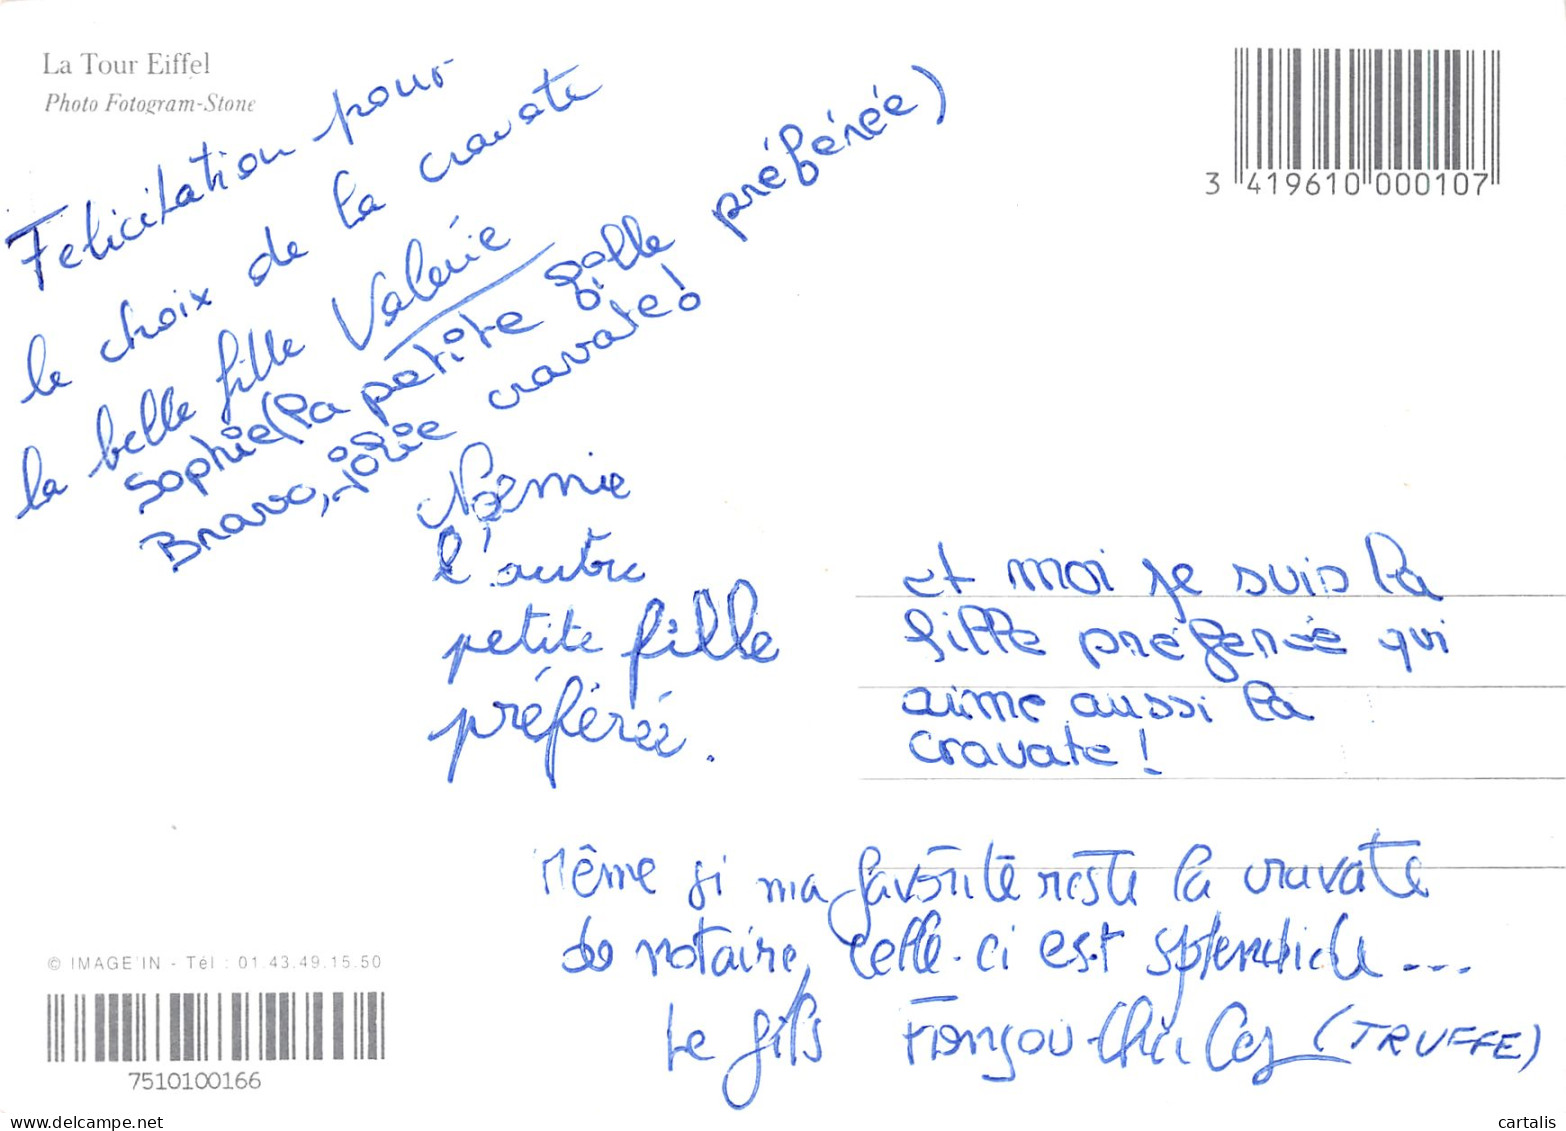 La Tour Eiffel
Photo Fotogram-Stone
3 419610 000107
Felicitation pour
le choix de la cravate
la belle fille Valérie
Sophie (la petite fille préférée)
Bravo, jolie cravate!
Noémie
l'autre
petite fille
préférée.
et moi je suis la
fille préférée qui
aime aussi la
cravate!
Même si ma favorite reste la cravate
de notaire, celle-ci est splendide...
Le fils (TRUFFE)
© IMAGE'IN - Tél : 01.43.49.15.50
7510100166
cartalis
www.delcampe.net